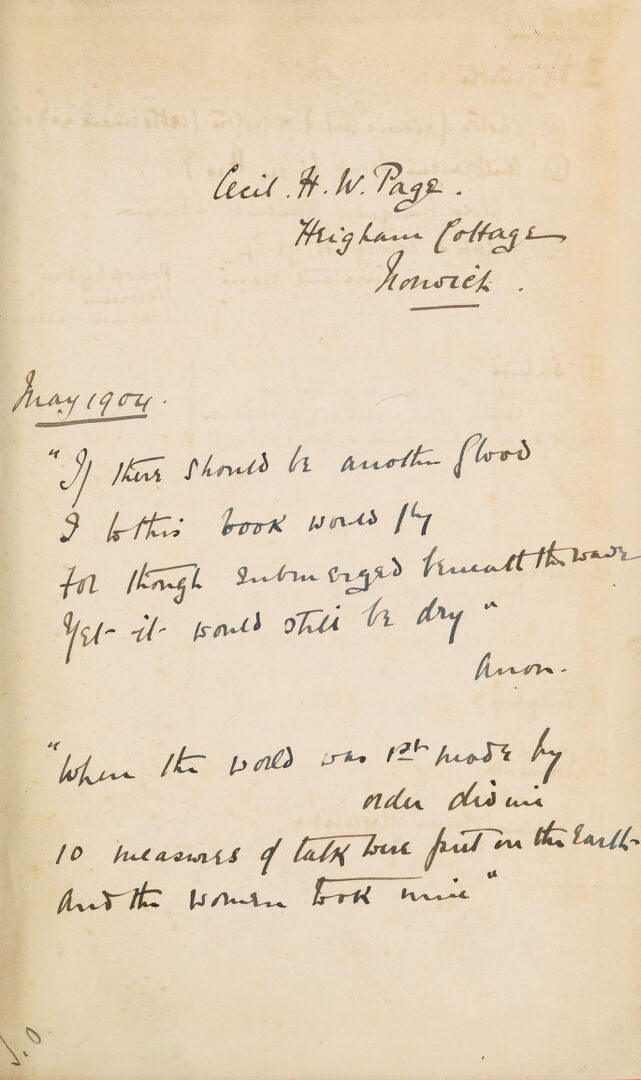 Cecil. H. W. Page.
Heigham Cottage
Norwich.
May 1904.
"If there should be another flood
I to this book would fly
For though submerged beneath the wave
Yet it would still be dry"
Anon.
"When the world was 1st made by
order divine
10 measures of talk were put on the Earth
And the women took nine"